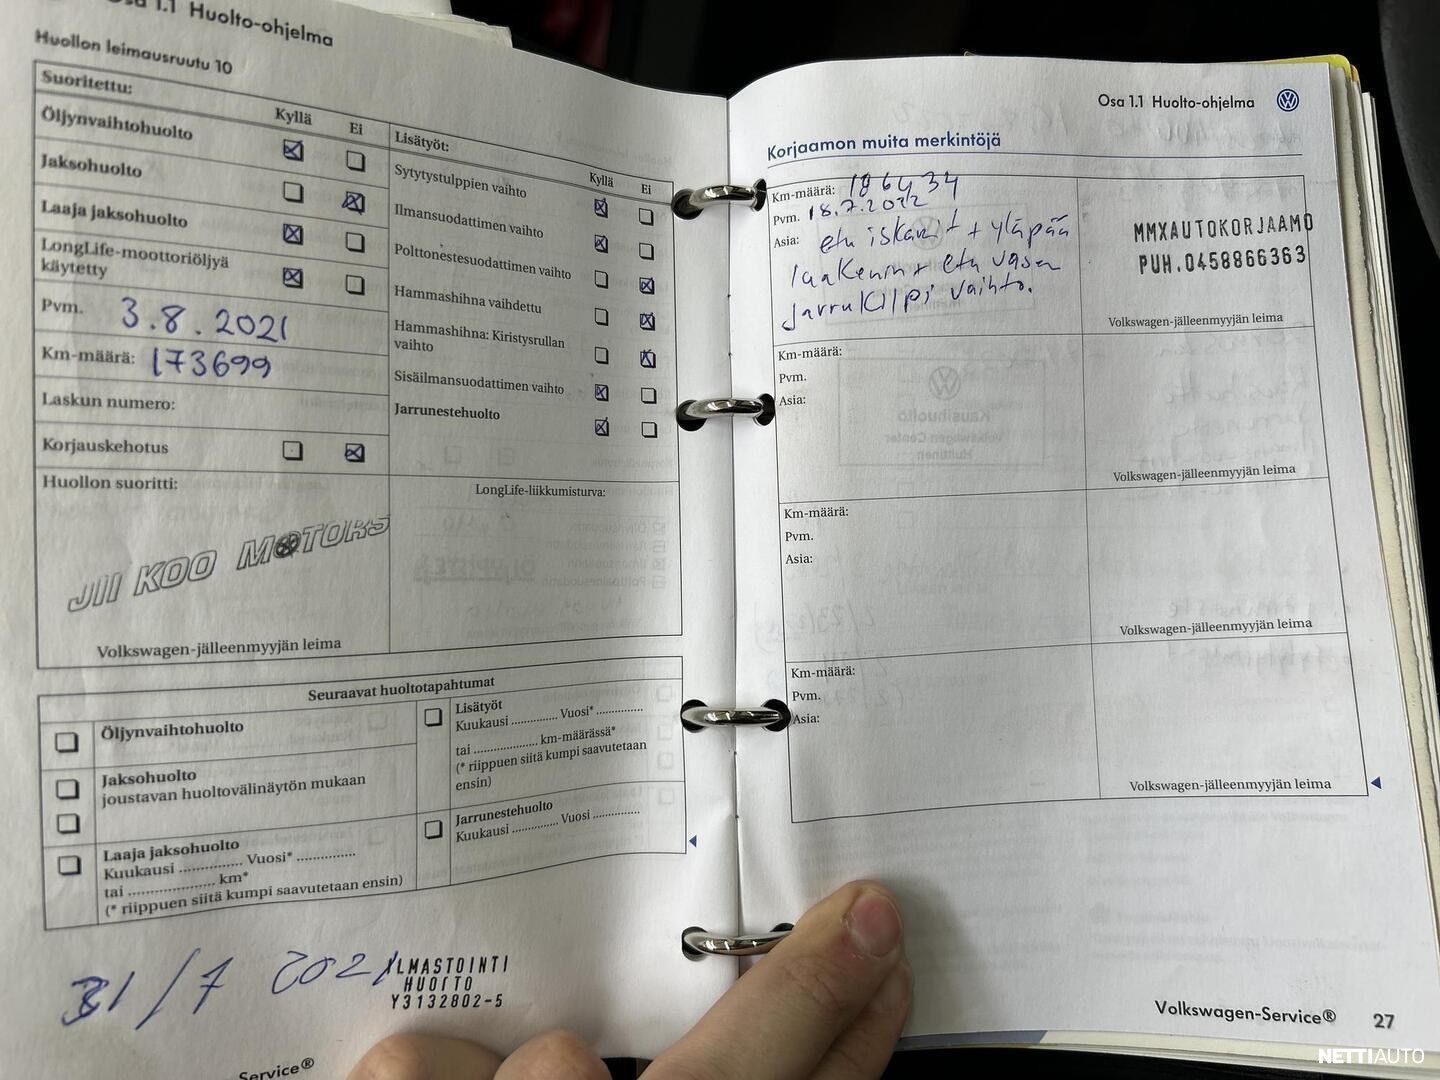 Osa 1.1 Huolto-ohjelma
Huollon leimausruutu 10
Suoritettu:
Kyllä Ei
Öljynvaihtohuolto
Jaksohuolto
Laaja jaksohuolto
LongLife-moottoriöljyä
käytetty
Pvm. 3.8.2021
Km-määrä: 173699
Laskun numero:
Korjauskehotus
Huollon suoritti:
JII KOO MOTORS
Volkswagen-jälleenmyyjän leima
Lisätyöt:
Kyllä Ei
Sytytystulppien vaihto
Ilmansuodattimen vaihto
Polttonestesuodattimen vaihto
Hammashihna vaihdettu
Hammashihna: Kiristysrullan
vaihto
Sisäilmansuodattimen vaihto
Jarrunestehuolto
LongLife-liikkumisturva:
Seuraavat huoltotapahtumat
Öljynvaihtohuolto
Jaksohuolto
joustavan huoltovälinäytön mukaan
Laaja jaksohuolto
Kuukausi ................ Vuosi* ...............
tai ...................... km*
(* riippuen siitä kumpi saavutetaan ensin)
Lisätyöt
Kuukausi .............. Vuosi* ..............
tai .................... km-määrässä*
(* riippuen siitä kumpi saavutetaan
ensin)
Jarrunestehuolto
Kuukausi .............. Vuosi ..............
31/7 2021
ILMASTOINTI
HUOLTO
Y3132802-5
Service®
Osa 1.1 Huolto-ohjelma
Korjaamon muita merkintöjä
Km-määrä: 186434
Pvm. 18.7.2022
Asia: etu iskarit + yläpää
laakerin + etu vasen
jarrukilpi vaihto.
MMXAUTOKORJAAMO
PUH.0458866363
Volkswagen-jälleenmyyjän leima
Km-määrä:
Pvm.
Asia:
Volkswagen-jälleenmyyjän leima
Km-määrä:
Pvm.
Asia:
Volkswagen-jälleenmyyjän leima
Km-määrä:
Pvm.
Asia:
Volkswagen-jälleenmyyjän leima
Volkswagen-Service® 27
NETTIAUTO